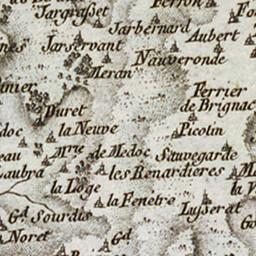 Jargrasset
Jarbernard
Aubert
Jarservant
Nauveronde
Meran
Ferrier
de Brignac
Duret
la Neuve
Picolin
Mre de Medoc
Sauvegarde
les Renardieres
la Loge
la Fenetre
Lusserat
Gd. Sourdis
Noret
Gd